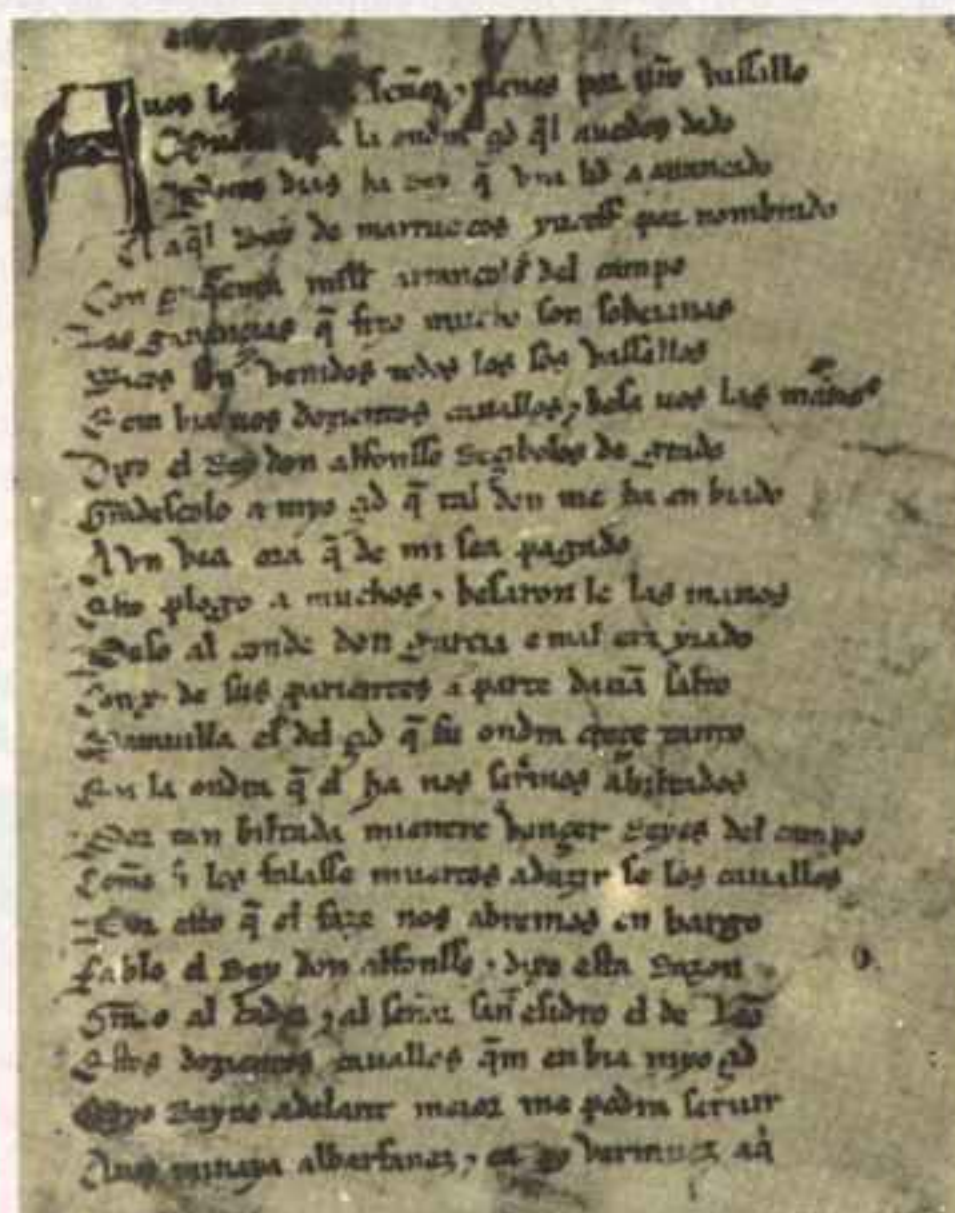 A uos señor, tienes por uro vassallo
la ondra çid q̃l auedes dado
dias ha Rey q̃ vna lid a arrancado
A aq̃l Rey de marruecos yuçeff por nombrado
Con mill arrancolos del campo
Las ganançias q̃ fizo mucho son sobeianas
Ricos son venidos todos los sos vassallos
E embia uos dozientos cauallos, ⁊ besa uos las manos
Dixo el Rey don alfonsso Reçibolos de grado
Gradescolo a myo çid q̃ tal don me ha enbiado
Avn vea ora q̃ de mi sea pagado
Esto plogo a muchos ⁊ besaron le las manos
Peso al conde don garcia e mal era yrado
Con .x. de sus parientes a parte dauã salto
Marauilla es del çid q̃ su ondra creçe tanto
En la ondra q̃ el ha nos seremos abiltados
Por tan biltada mientre vençer Reyes del campo
Comõ si los falasse muertos aduzir se los cauallos
Por esto q̃ el faze nos abremos en bargo
Fablo el Rey don alfonsso ⁊ dixo esta Razon
Gr̃do al cr̃ador, ⁊ al señor sañt esidro el de Leõ
Estos dozientos cauallos q̃m enbia myo çid
Myo Reyno adelant meior me podra seruir
A uos minaya albarfanez, ⁊ a po vermuez aq̃